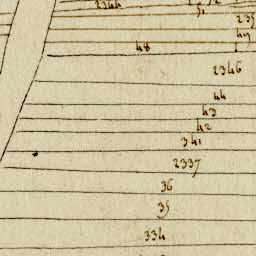 2344
51
235
49
48
2346
44
43
42
341
2337
36
35
334